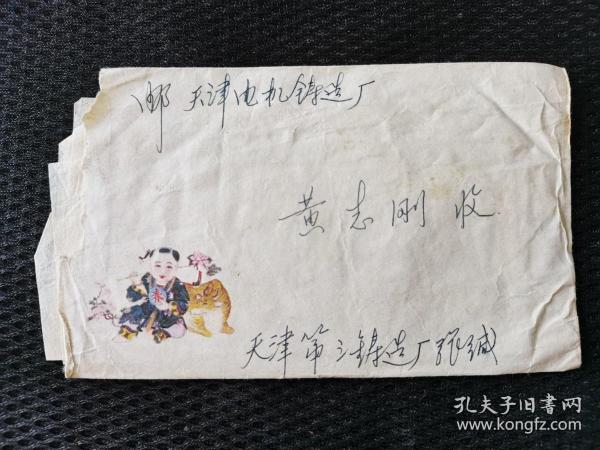 邮 天津电机铸造厂
黄志刚 收
春
天津第二铸造厂张缄
孔夫子旧书网
www.kongfz.com